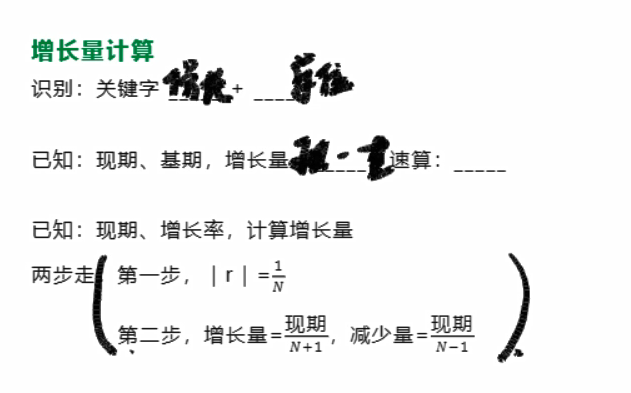 增长量计算
识别：关键字 增长 + 单位
已知：现期、基期，增长量 现-基 速算：_____
已知：现期、增长率，计算增长量
两步走 第一步，｜r｜=1/N
第二步，增长量=现期/N+1，减少量=现期/N−1